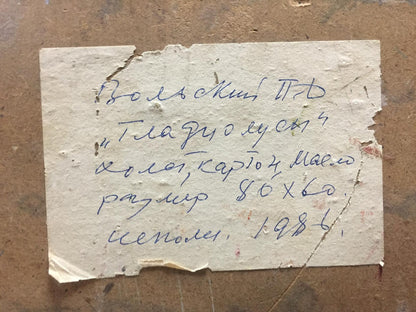 Вольский П.Д
„Гладиолусы"
холст, картон, масло
размер 80х60
исполн. 1986.